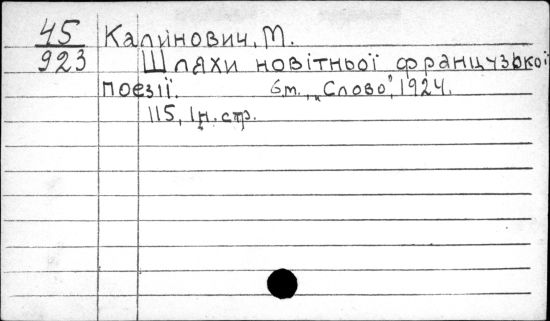 45
923
Калинович, М.
Шляхи новітньої французької
поезії. б.м., „Слово", 1924.
115, Iн. стр.